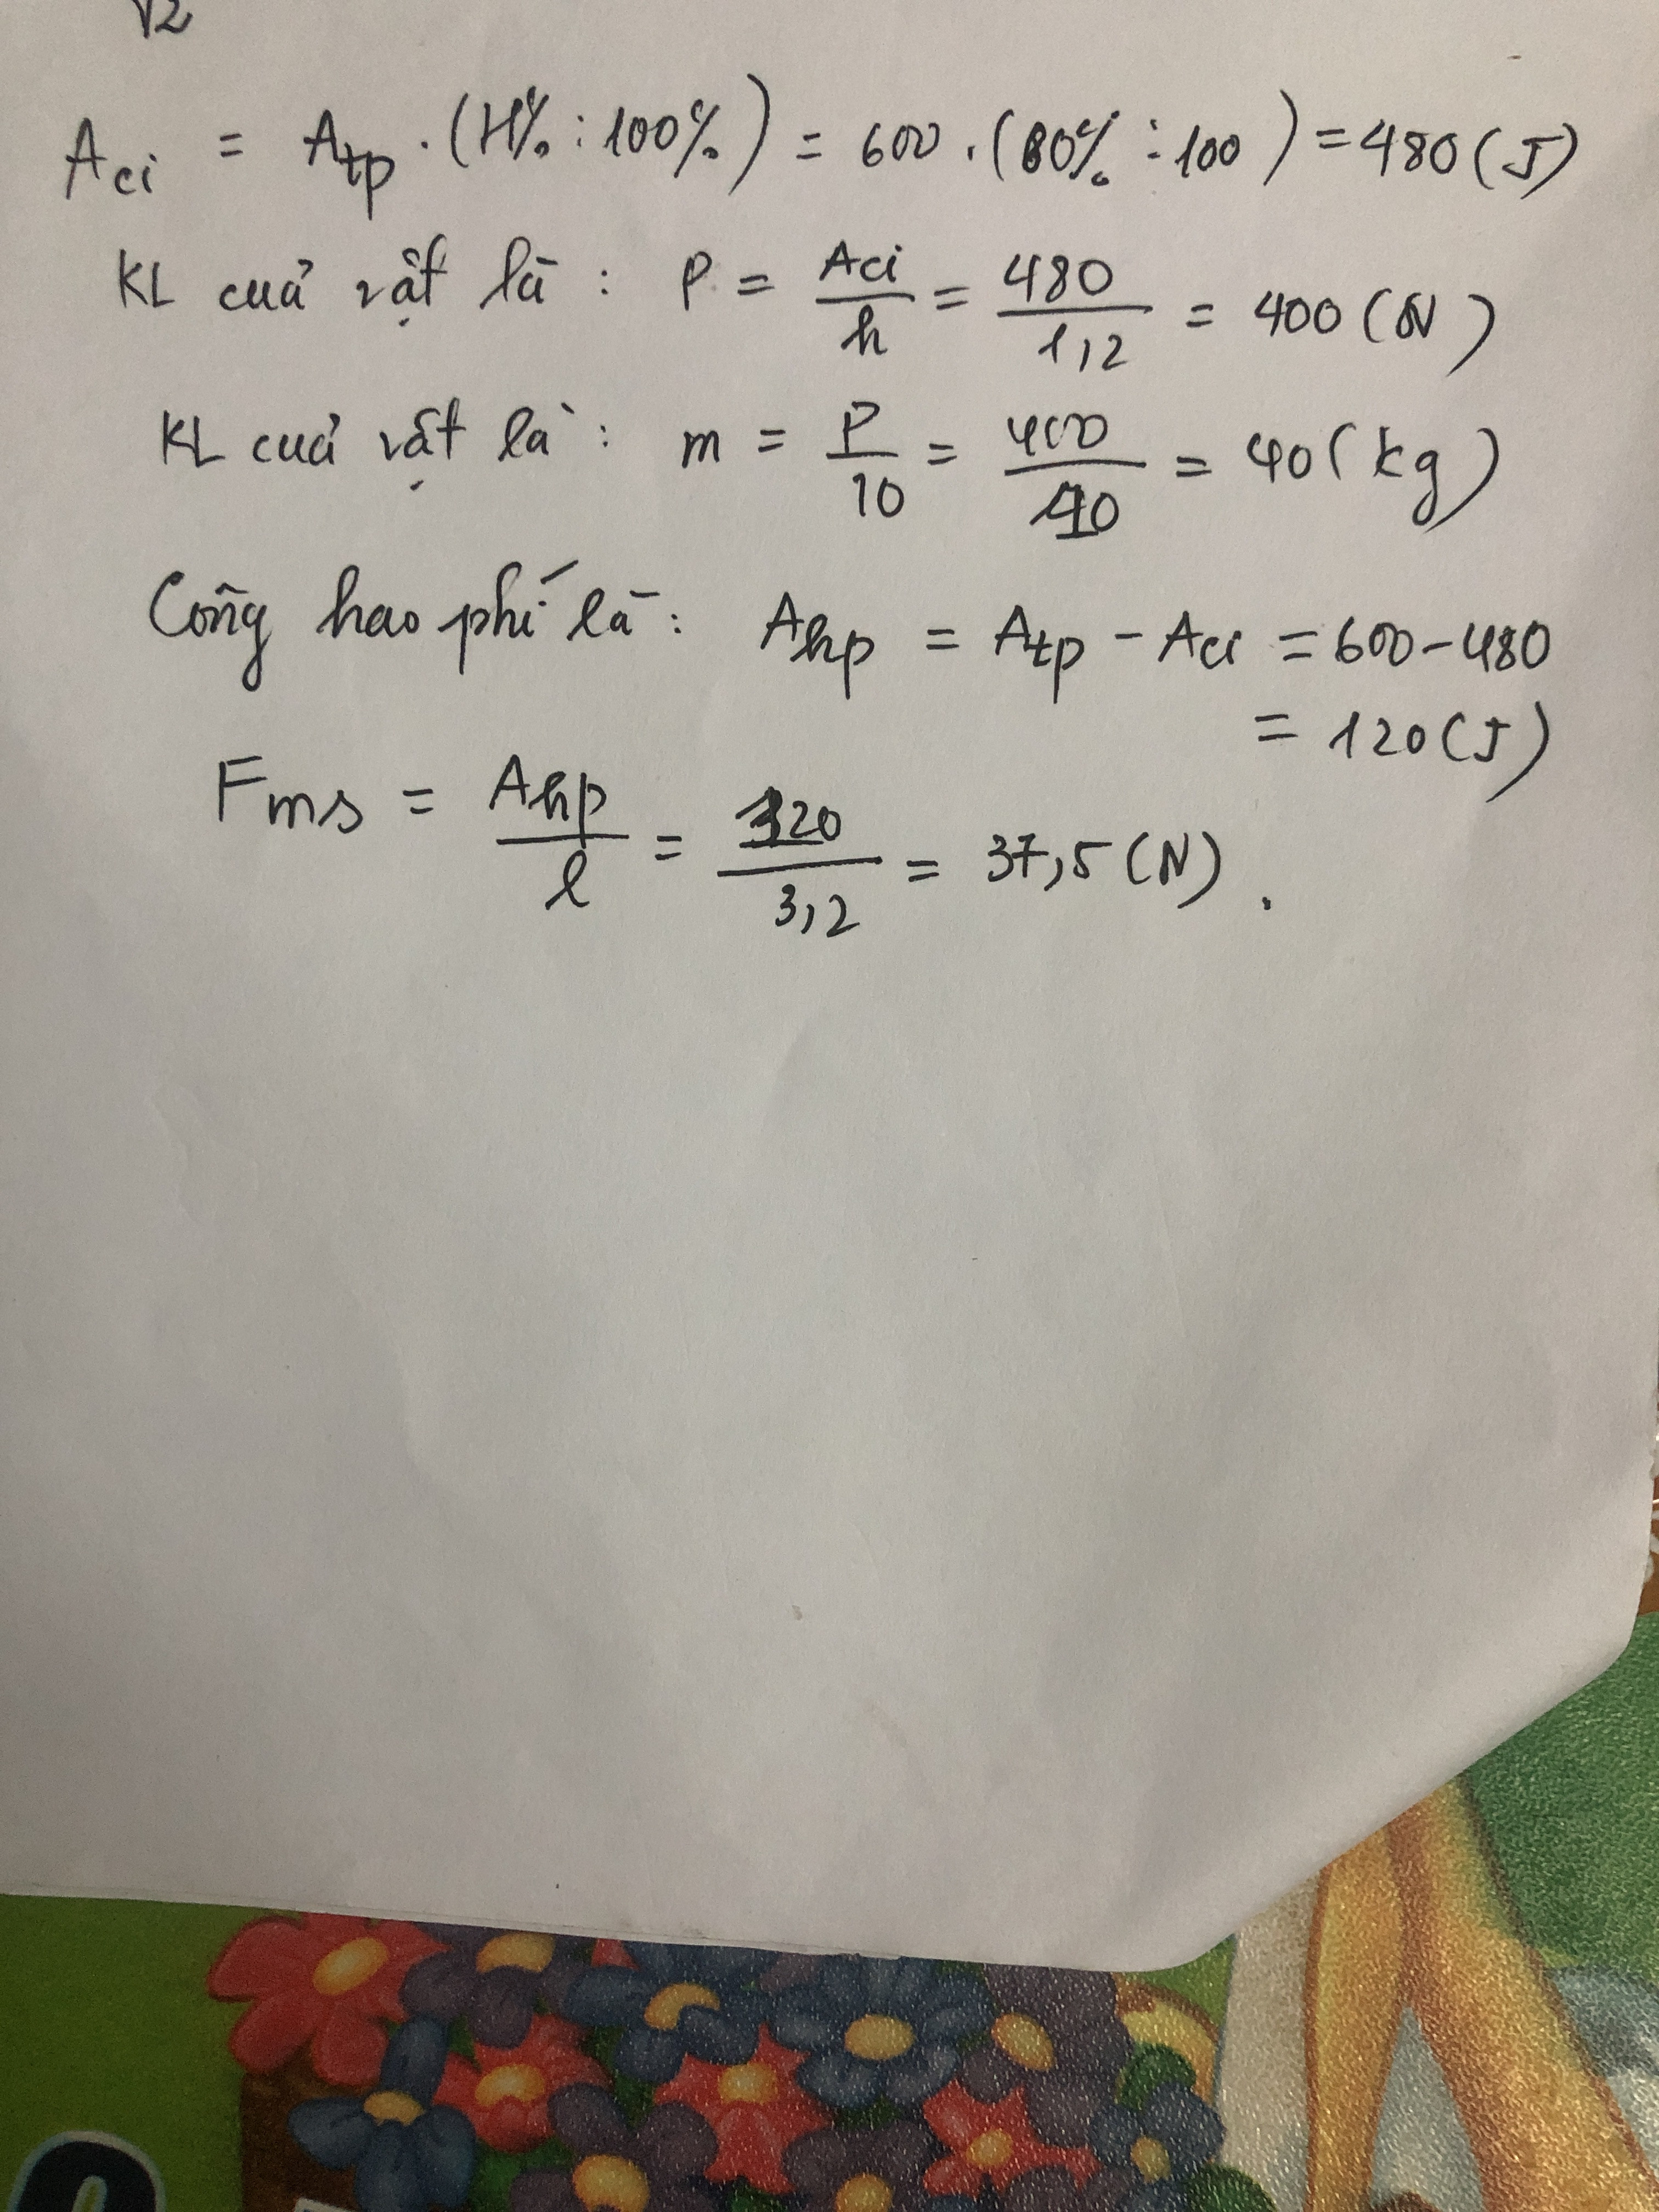 √2
Aci = Atp . (H% : 100%) = 600 . (80% : 100) = 480 (J)
KL cuả vật là : P = Aci/h = 480/1,2 = 400 (N)
KL cuả vật là : m = P/10 = 400/10 = 40 (kg)
Công hao phí là : Ahp = Atp - Aci = 600 - 480
= 120 (J)
Fms = Ahp/l = 120/3,2 = 37,5 (N) .